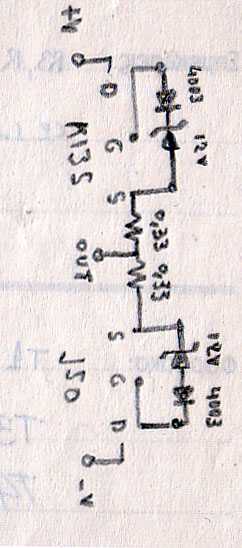 4003 12V 12V 4003
0,33 0,33
D G S S G D
OUT
+V K135 J50 -V